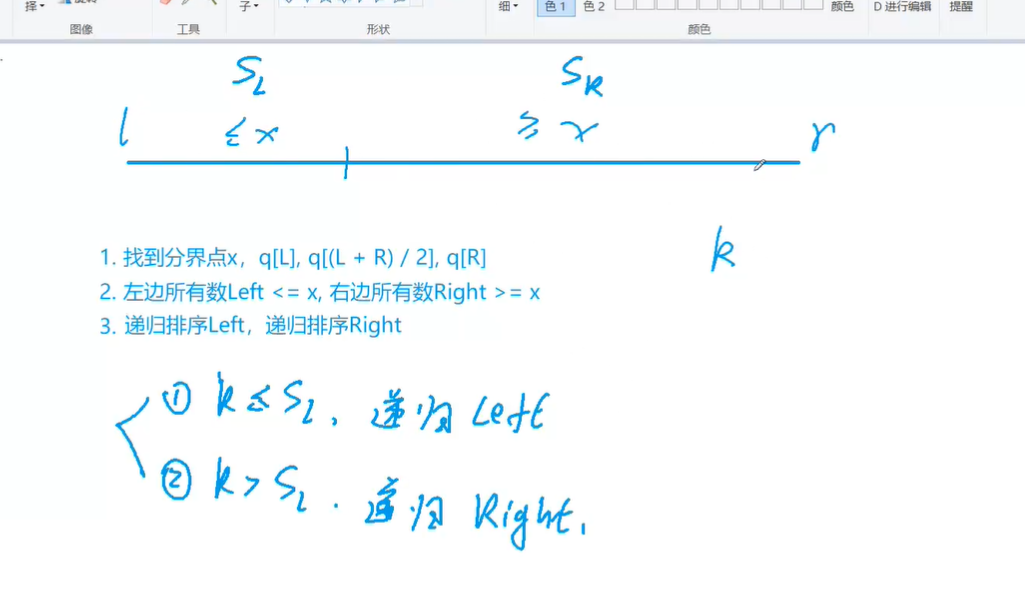 择
子
细
色 1 色 2
颜色
D 进行编辑
提醒
图像
工具
形状
颜色
S_L
S_R
l
≤ x
≥ x
r
k
1. 找到分界点x，q[L], q[(L + R) / 2], q[R]
2. 左边所有数Left <= x, 右边所有数Right >= x
3. 递归排序Left，递归排序Right
① k ≤ S_L, 递归 Left
② k > S_L. 递归 Right,